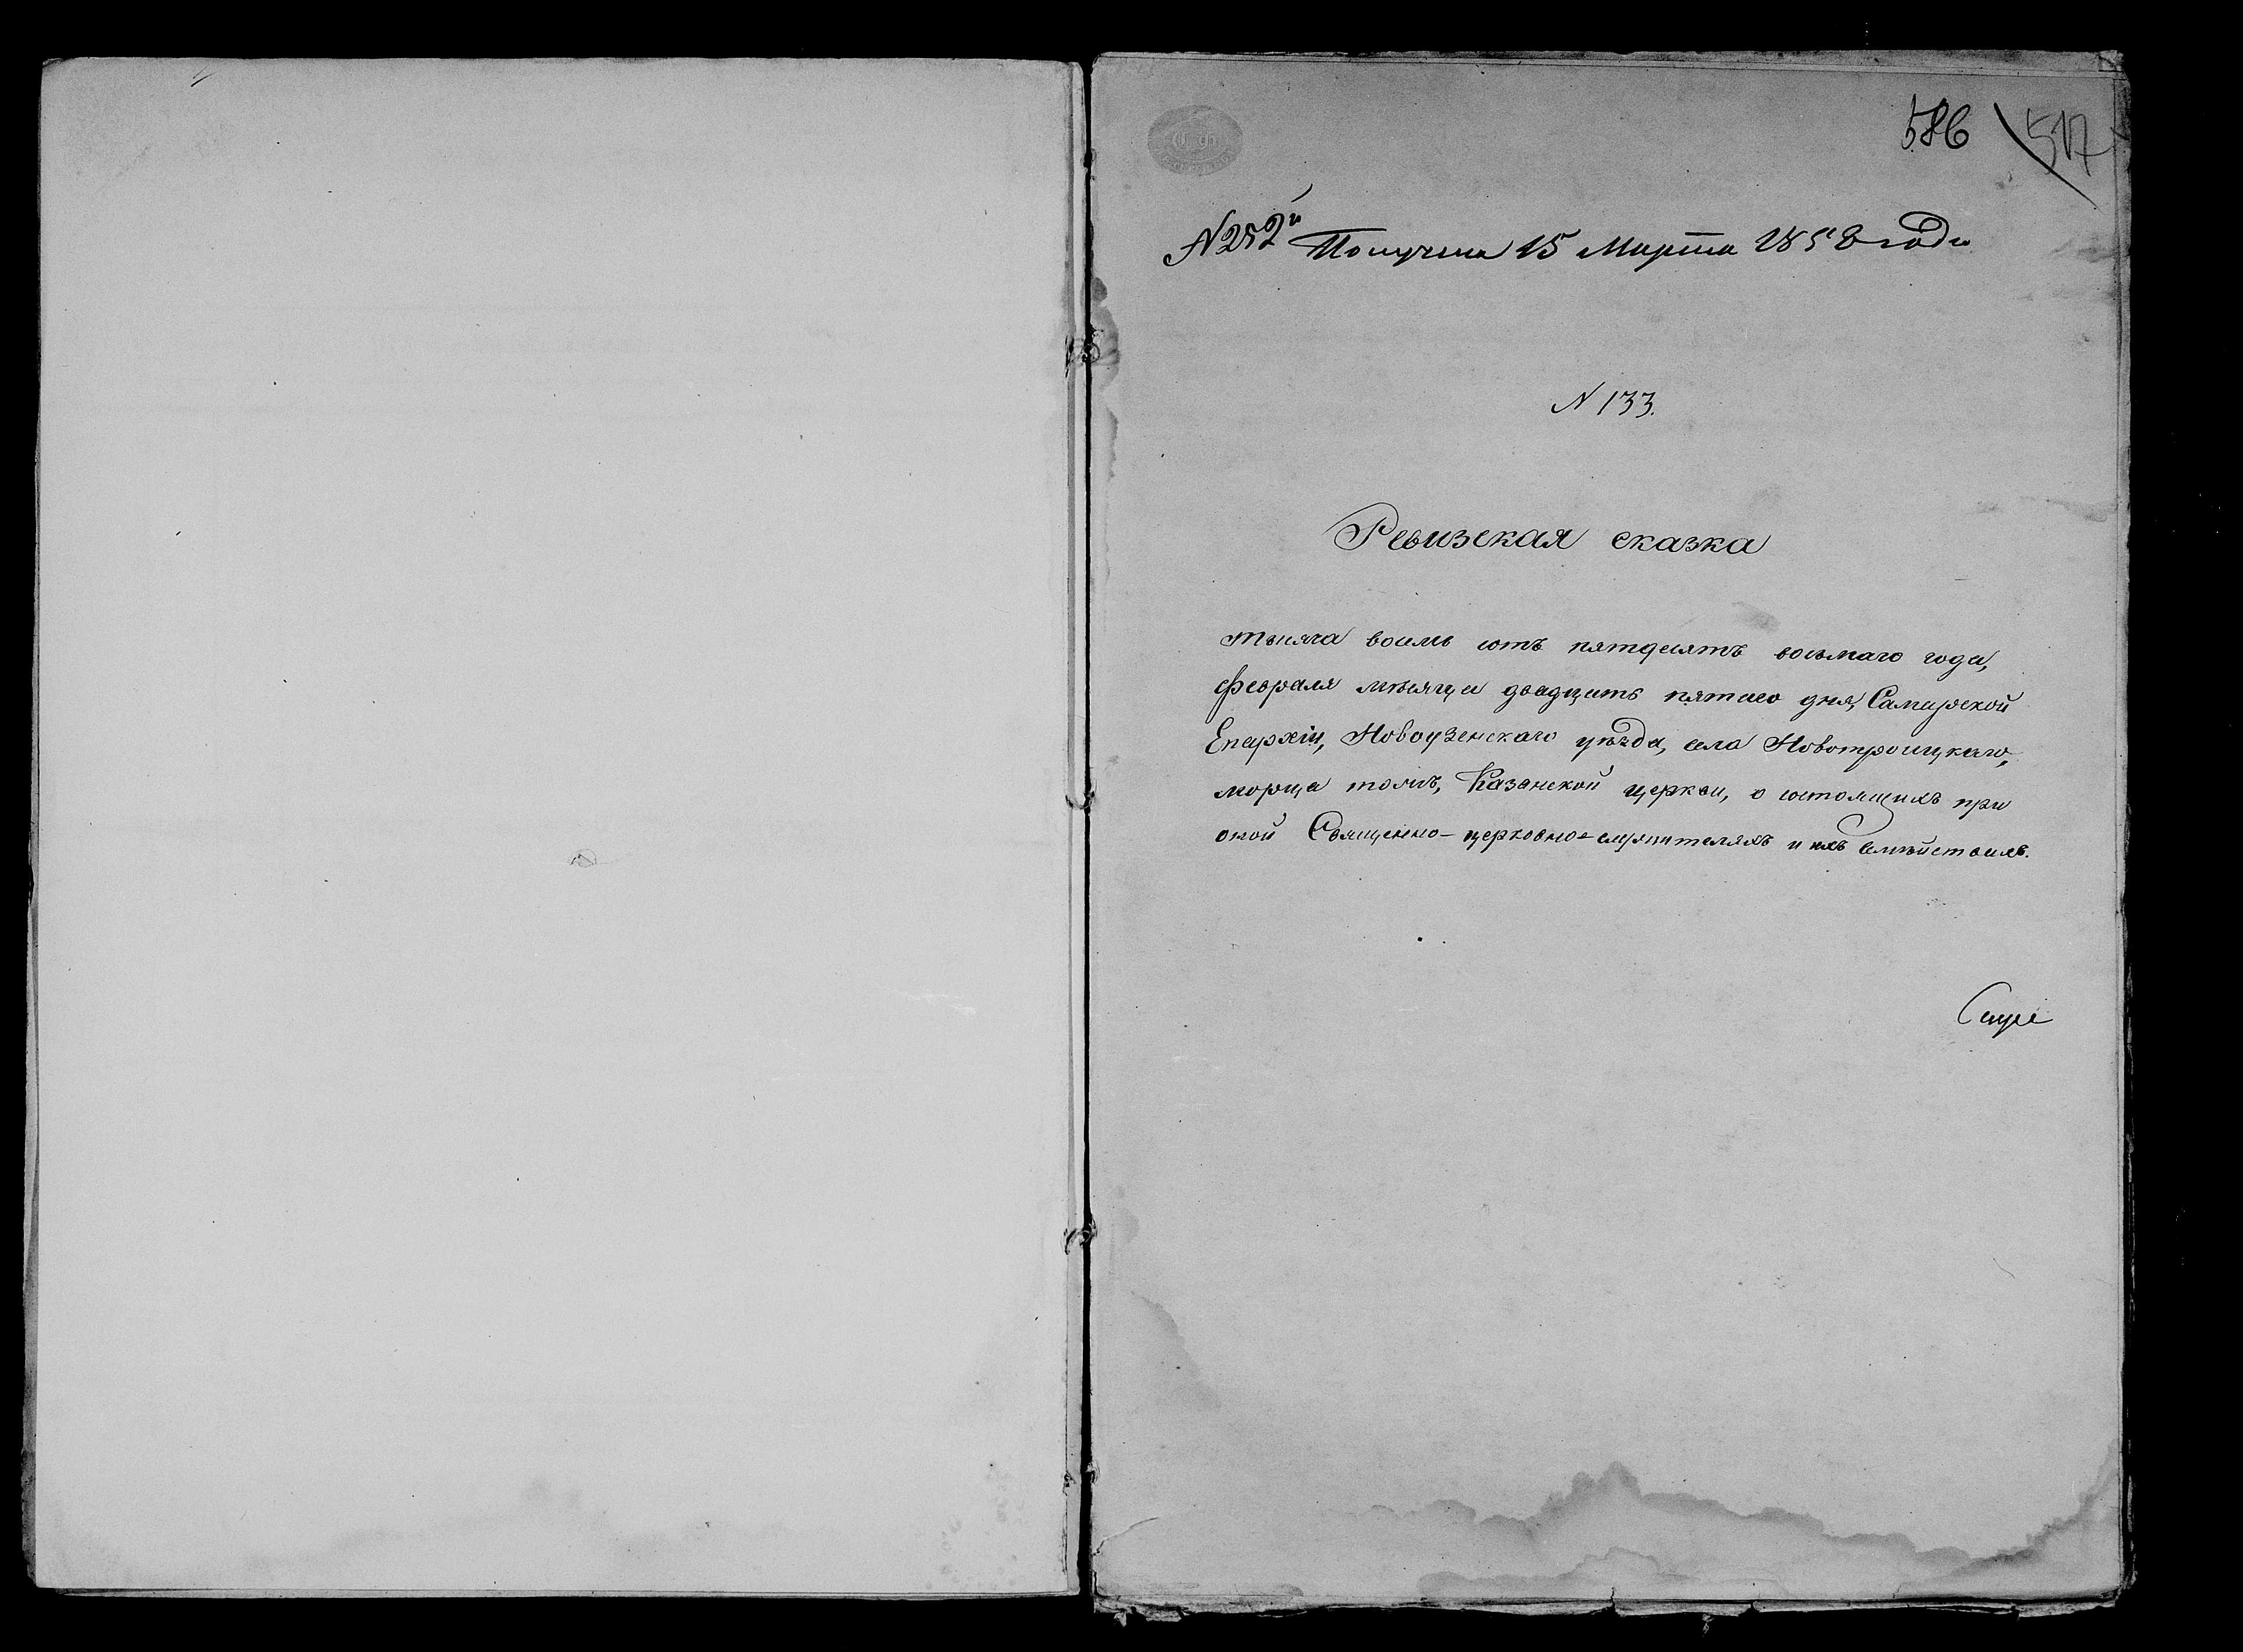 586 517
N 252й Получена 15 Марта 1858 года
N 133.
Ревизская сказка
тысяча восемь сотъ пятдесятъ восьмаго года,
февраля мѣсяца двадцать пятаго дня, Самарской
Епархіи, Новоузенскаго уѣзда, села Новотроицкаго,
морца тожъ, Казанской церкви, о состоящихъ при
оной Священно-церковно-служителяхъ и ихъ семѣйствахъ.